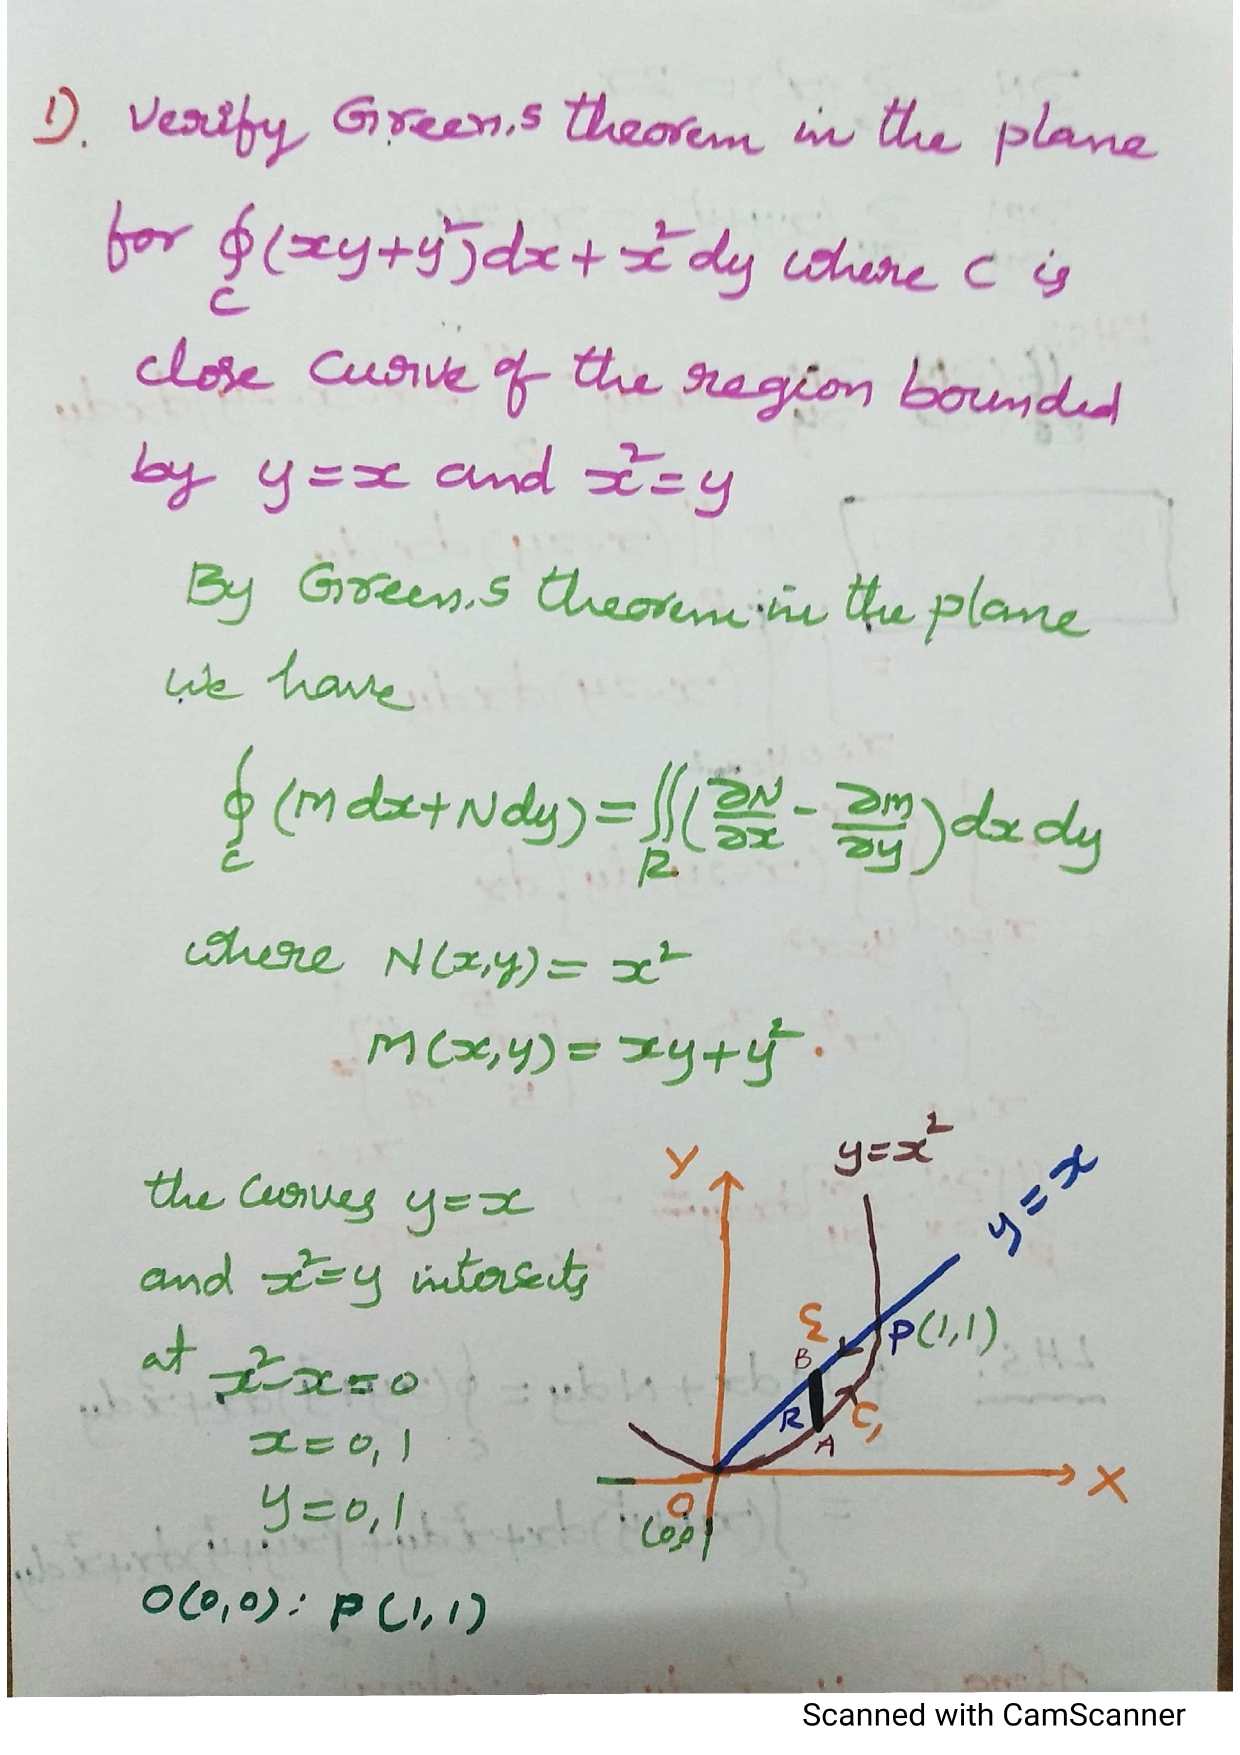 1). Verify Green,s theorem in the plane
for ∮_C (xy+y²)dx + x² dy where C is
close curve of the region bounded
by y=x and x²=y
By Green,s theorem in the plane
we have
∮_C (M dx + N dy) = ∬_R (∂N/∂x - ∂M/∂y) dx dy
where N(x,y) = x²
M(x,y) = xy+y².
the curves y=x
and x²=y intersects
at x²-x=0
x=0,1
y=0,1
O(0,0): P(1,1)
Y
y=x²
y=x
P(1,1)
B
R
A
C₁
O
X
Scanned with CamScanner